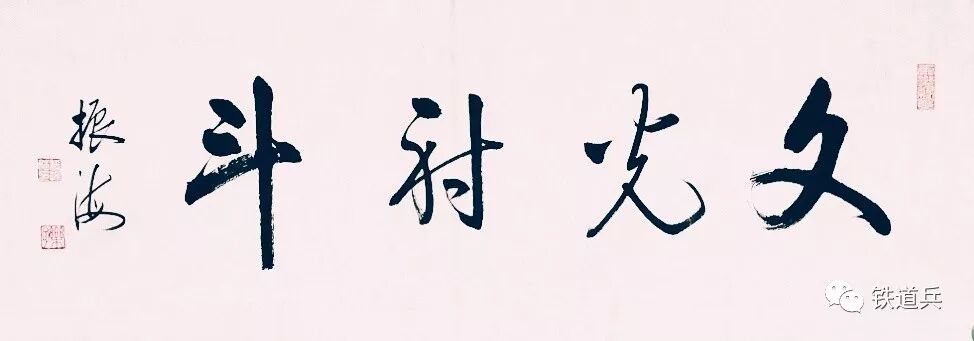 文光射斗
振海
铁道兵